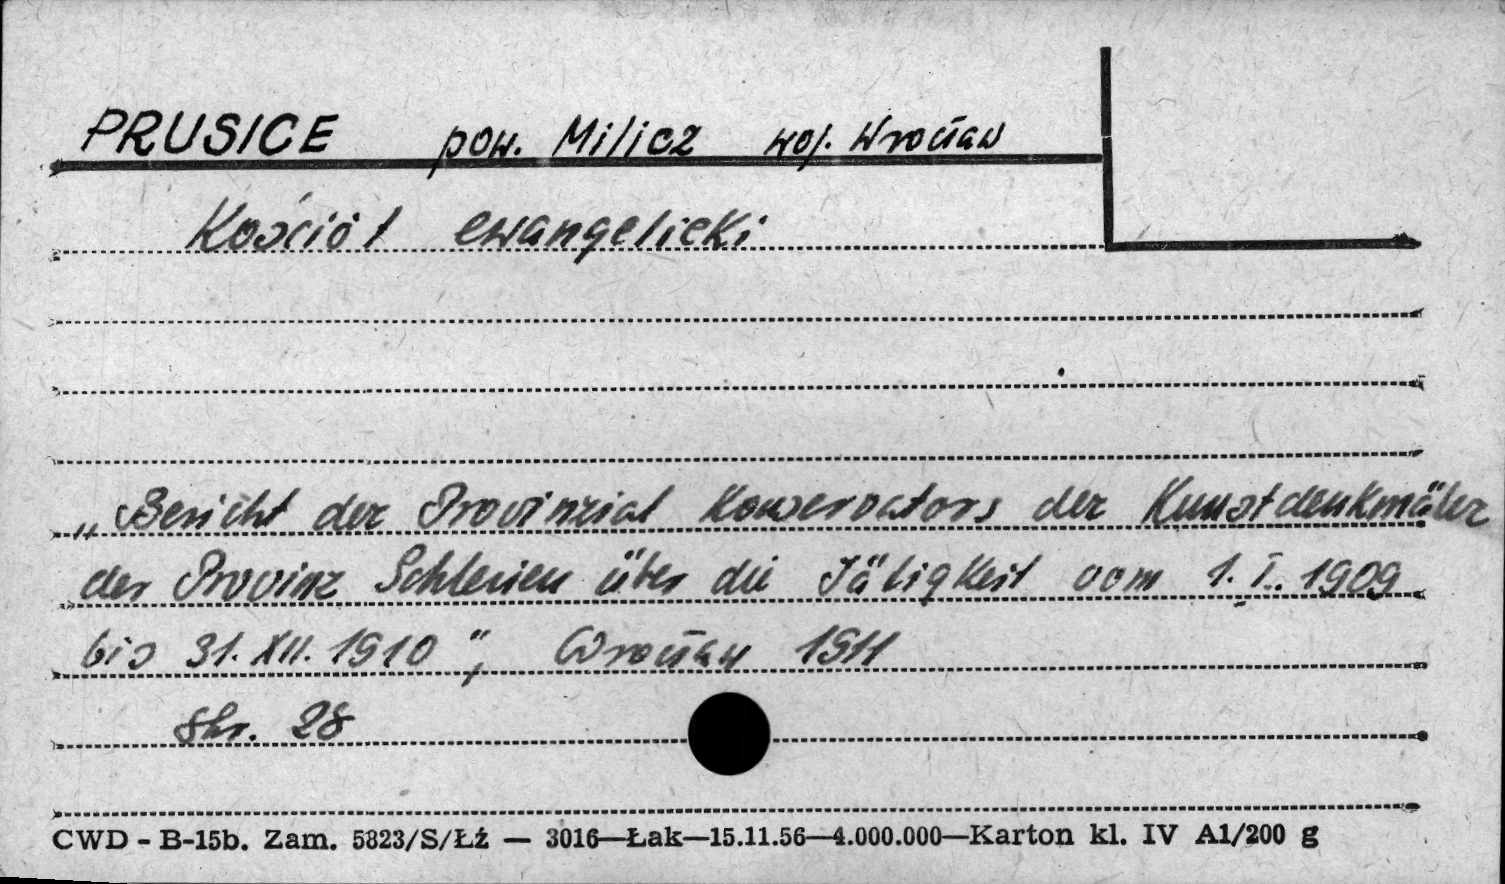 PRUSICE pow. Milicz woj. Wrocław
Kościół ewangelicki
„Bericht der Provinzial Konservators der Kunstdenkmäler
der Provinz Schlesien über die Tätigkeit vom 1.I. 1909
bis 31. XII. 1910", Wrocław 1911
Str. 28
CWD - B-15b. Zam. 5823/S/Łż — 3016—Łak—15.11.56—4.000.000—Karton kl. IV A1/200 g